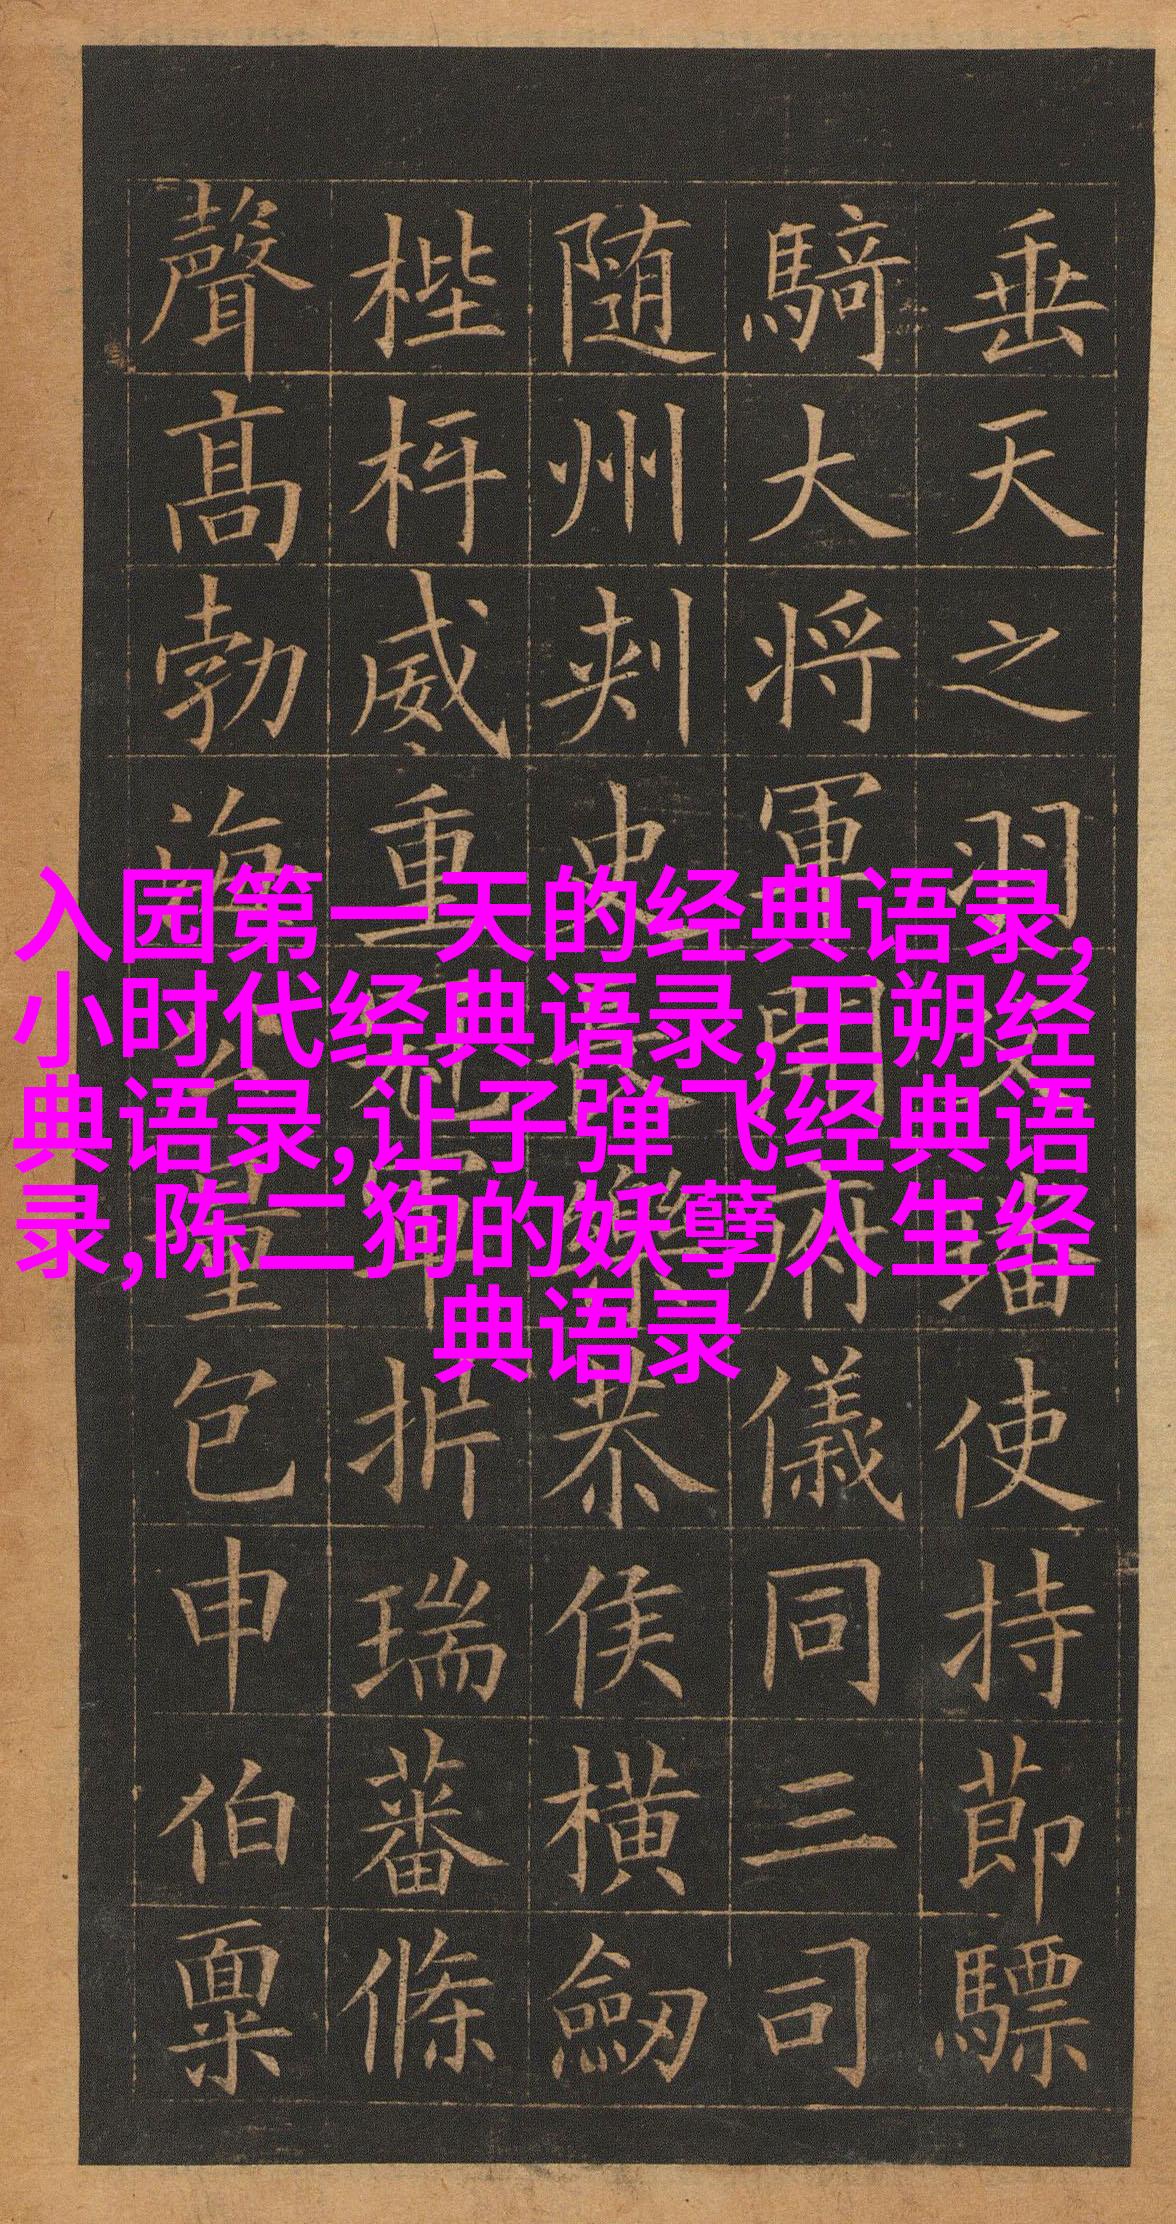 垂天之羽父璠使持節驃
騎大将軍開府儀同三司
随州刾史長樂恭侯橫劒
梐枑威重冠軍析瑞蕃條
聲高勃海公量包申伯稟
入园第一天的经典语录,
小时代经典语录,王朔经
典语录,让子弹飞经典语
录,陈二狗的妖孽人生经
典语录